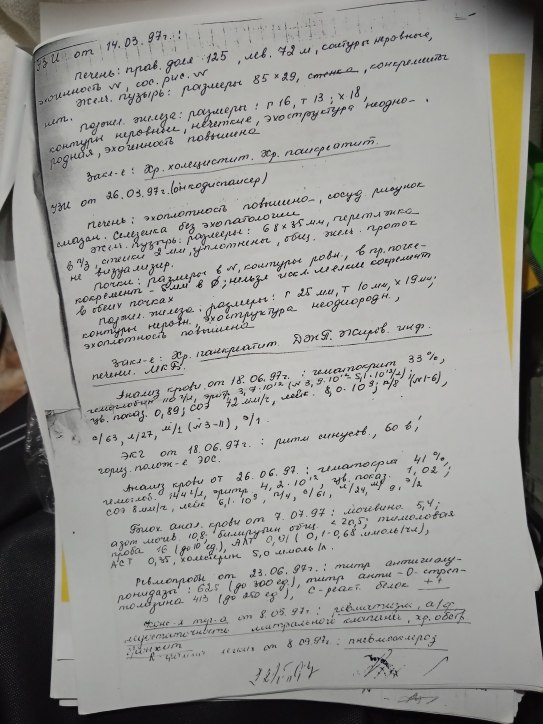 УЗИ от 14.03.97г.:
Печень: прав. доля: 125, лев. 72 м, контуры неровные,
эхогенность N, сос. рис. N
Желч. пузырь: размеры 85 x 29, стенка, конкременты
нет.
Поджел. железа: размеры: г 16, т 13; х 18,
контуры неровные, нечеткие, эхоструктура неодно-
родная, эхогенность повышена
Закл-е: Хр. холецистит. Хр. панкреатит.
УЗИ от 26.03.97г. (онкодиспансер)
Печень: эхоплотность повышена, сосуд рисунок
смазан. Селезенка без эхопатологии
Желч. пузырь: размеры: 68 x 35 мм, перетяжка
в п/3, стенки 2 мм, уплотнены, общ. желч. проток
не визуализир.
Почки: размеры в N, контуры ровн, в пр. почке-
конкремент - 5мм в ∅; нельзя искл. мелкие конкремент
в обеих почках
Поджел. железа: размеры: г 25 мм, т 10 мм, х 19 мм;
контуры неровн, эхоструктура неоднородн,
эхоплотность повышена
Закл-е: Хр. панкреатит. ДЖП. Жиров. инф.
печени. МКБ.
Анализ крови от 18.06.97г.: гематокрит 33%,
гемоглобин 110 г/л, эритр. 3,7·10¹² (N 3,9·10¹²-5,1·10¹²/л);
цв. показ. 0,89; СОЭ 42 мм/ч, левк. 8,0·10⁹; п/8 (N1-6),
с/63, л/27, м/1 (N 3-11), э/1.
ЭКГ от 18.06.97г.: ритм синусов, 60 в 1',
гориз. полож-е ЭОС.
Анализ крови от 26.06.97: гематокрит 41%,
гемогл. 144 г/л, эритр. 4,2·10¹², цв. показ. 1,02;
СОЭ 8мм/ч, левк 6,1·10⁹, п/4, с/61, л/24, м/9, э/2
Биох анал. крови от 7.07.97: мочевина 5,4;
азот мочев. 10,8, билирубин общ. 20,5; тимоловая
проба 16 (до 10 ед), АЛТ 0,01 (0,1-0,68 ммоль/чл),
АСТ 0,35, холестерин 5,0 ммоль/л.
Ревмопробы от 23.06.97г.: титр антигиалу-
ронидазы: 625 (до 300 ед), титр анти-О-стреп-
толизина 413 (до 250 ед), С-реакт. белок ++
от 8.09.97г.: ревматизм, а/ф
недостаточность митрального клапана, хр.
R- легких от 8.09.97г.: пневмосклероз